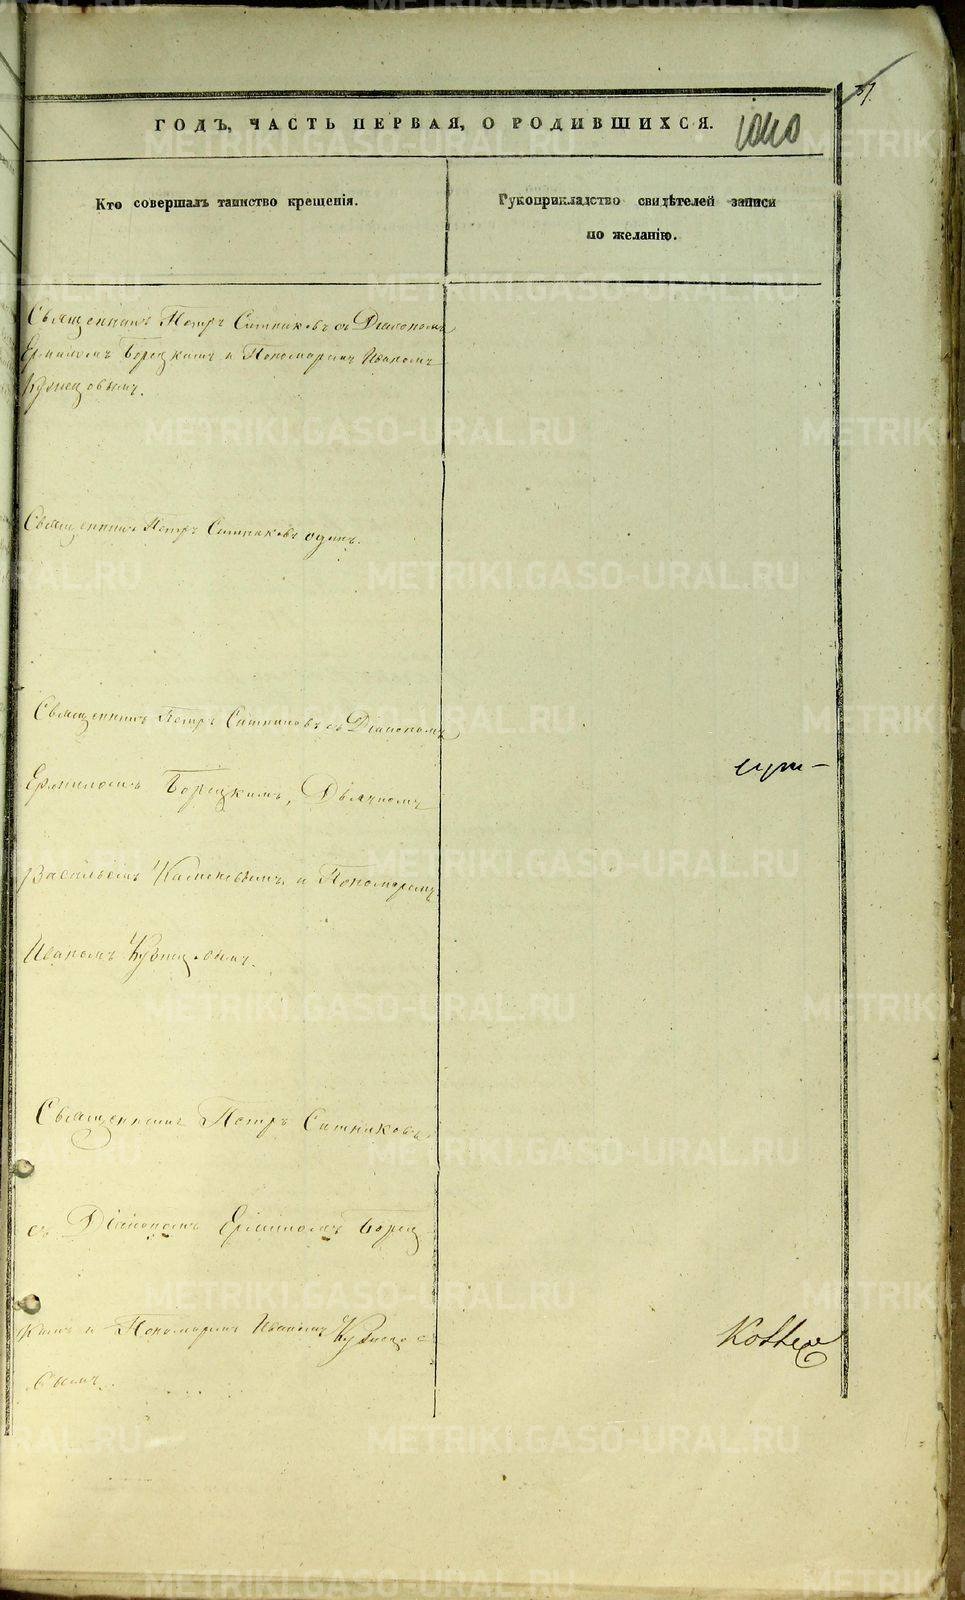 ГОДЪ, ЧАСТЬ ПЕРВАЯ, О РОДИВШИХСЯ.
Кто совершалъ таинство крещенія.
Рукоприкладство свидѣтелей записи
по желанію.
Священникъ Петръ Ситниковъ съ Діакономъ
Ермиломъ Борецкимъ и Пономаремъ Иваномъ
Кузнецовымъ.
Священникъ Петръ Ситниковъ одинъ.
Священникъ Петръ Ситниковъ съ Діакономъ
Ермиломъ Борецкимъ, Дьячкомъ
Васильемъ и Пономаремъ
Иваномъ Кузнецовымъ.
Священникъ Петръ Ситниковъ
съ Діакономъ Ермиломъ Борец
кимъ и Пономаремъ Иваномъ Кузнецо
вымъ.
METRIKI.GASO-URAL.RU